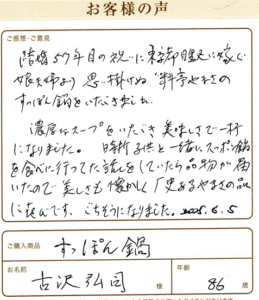 お客様の声
ご感想・ご意見
結婚57年目の祝いに東京都日野に嫁ぐ
娘夫婦より思い掛けぬ 料亭やまさの
すっぽん鍋をいただきました。
濃厚なスープをいただき 美味しさで一杯
になりました。 子供と一緒にスッポン鍋
を食べに行ってた話をしていたら品物が届
いたので 美しさも懐かしく 歴史あるやまさの品
に喜んです。ごちそうになりました。2025.6.5
ご購入商品 すっぽん鍋
お名前 古沢弘司 様 年齢 86 歳